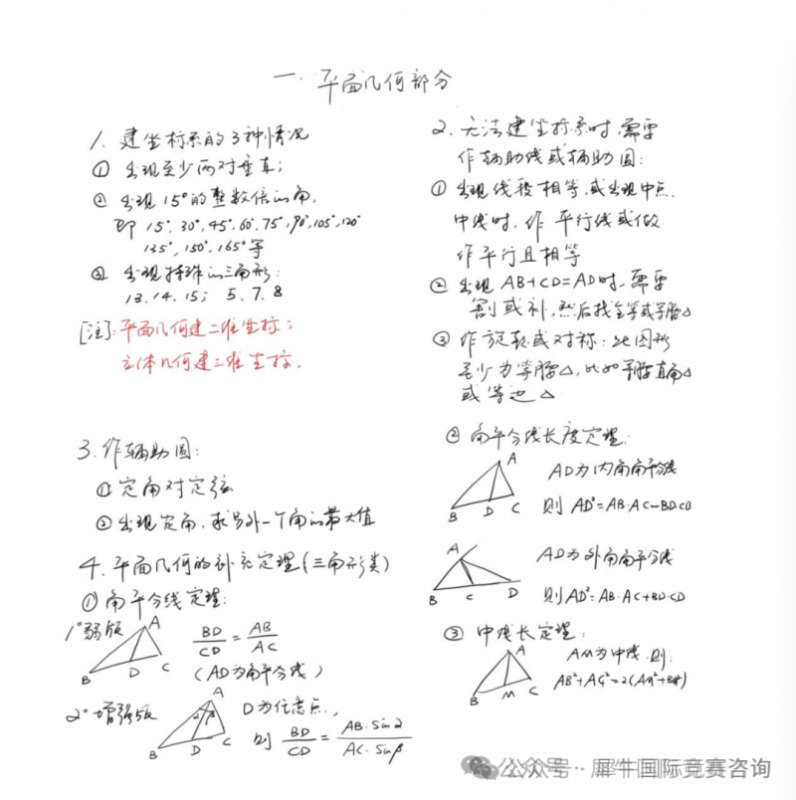 一. 平面几何部分
1. 建坐标系的3种情况
① 出现至少两对垂直;
② 出现15°的整数倍的角.
即 15°, 30°, 45°, 60°, 75°, 90°, 105°, 120°
135°, 150°, 165°等
③ 出现特殊的三角形:
13. 14. 15; 5. 7. 8
[注]: 平面几何建二维坐标;
立体几何建三维坐标.
2. 无法建坐标系时, 需要
作辅助线或辅助圆:
① 出现线段相等, 或出现中点.
中线时, 作平行线或做
作平行且相等
② 出现 AB+CD=AD时, 需要
割或补, 然后找全等或等腰△
③ 作旋转或对称: 此图形
至少为等腰△, 比如等腰直角△
或等边△
3. 作辅助圆:
① 定角对定弦
② 出现定角, 求另外一个角的最大值
4. 平面几何的补充定理(三角形类)
① 角平分线定理:
1° 弱版
A
B
D
C
BD/CD = AB/AC
(AD为角平分线)
2° 增强版
A
α β
B
D
C
D为任意点,
则 BD/CD = AB·Sinα/AC·Sinβ
② 角平分线长度定理:
A
B
D
C
AD为内角角平分线
则 AD²=AB·AC-BD·CD
A
B
C
D
AD为外角角平分线
则 AD²=AB·AC+BD·CD
③ 中线长定理:
A
B
M
C
AM为中线, 则:
AB²+AC²=2(AM²+BM²)
公众号 · 犀牛国际竞赛咨询